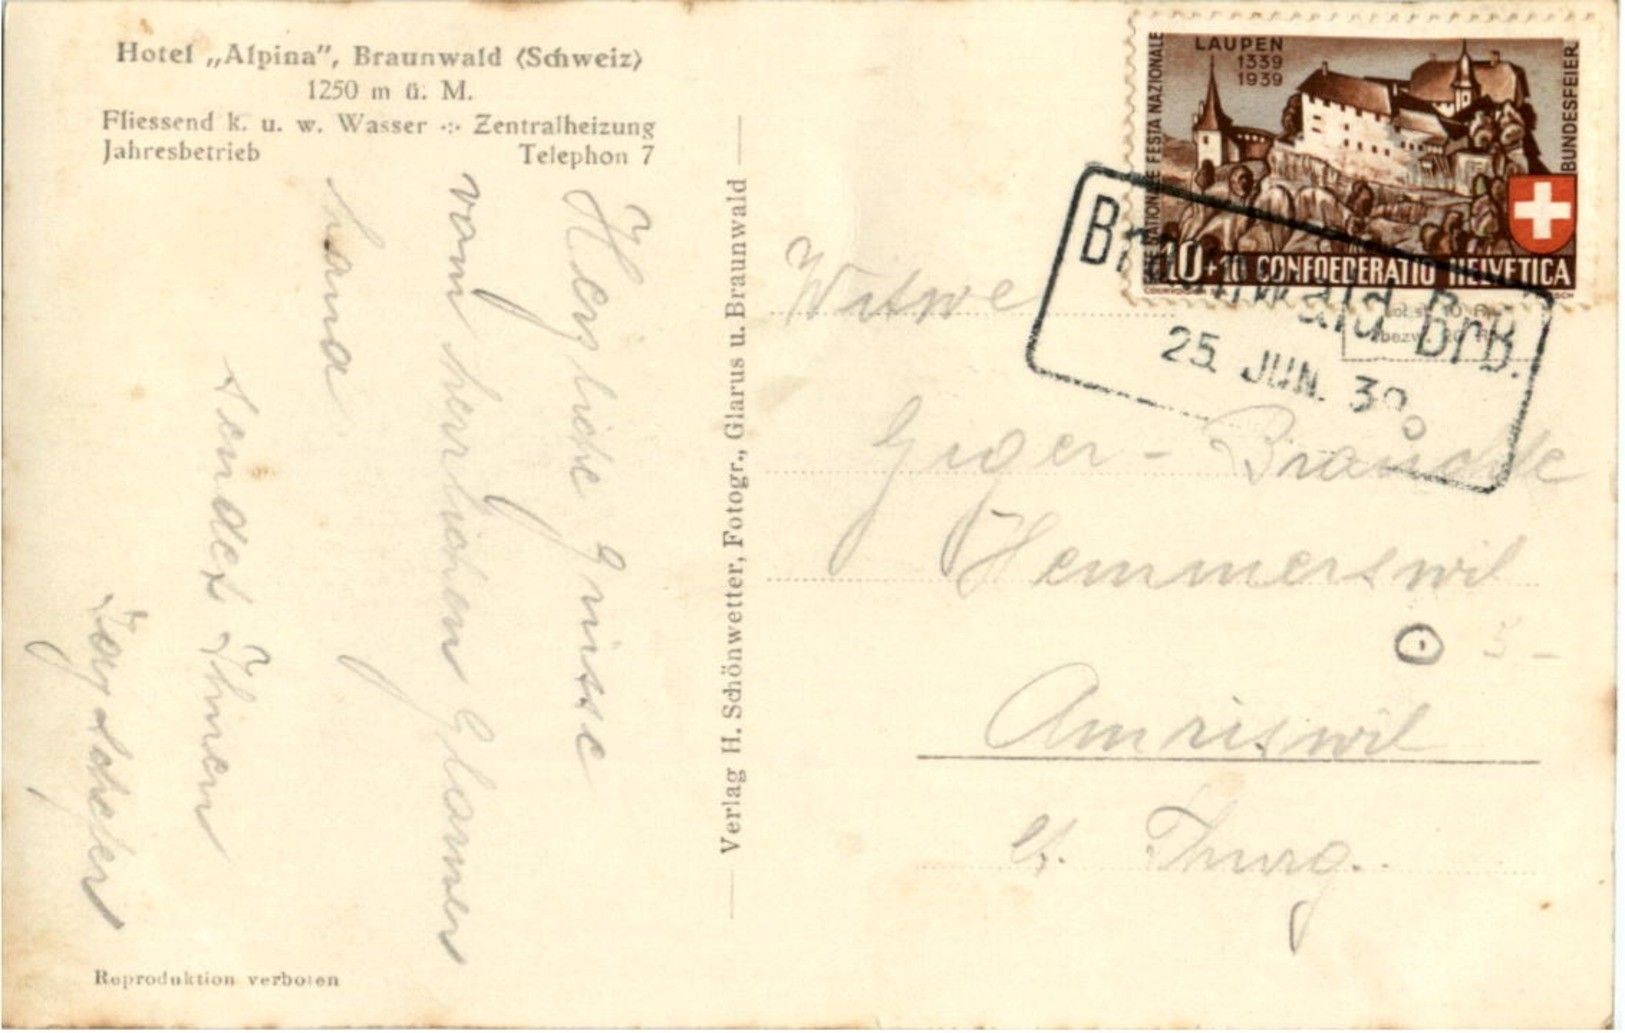 Hotel „Alpina", Braunwald (Schweiz)
1250 m ü. M.
Fliessend k. u. w. Wasser ·:· Zentralheizung
Jahresbetrieb Telephon 7
Herzliche Grüsse
vom herrlichen Glarner
sendet Ihnen
Reproduktion verboten
Verlag H. Schönwetter, Fotogr., Glarus u. Braunwald
LAUPEN
1339
1939
FESTA NAZIONALE
BUNDESFEIER
10+10 CONFOEDERATIO HELVETICA
Braunwald BrB.
25. JUN. 39
Witwe
Giger-
Hemmerswil
5-
Amriswil
Kt. Thurg.